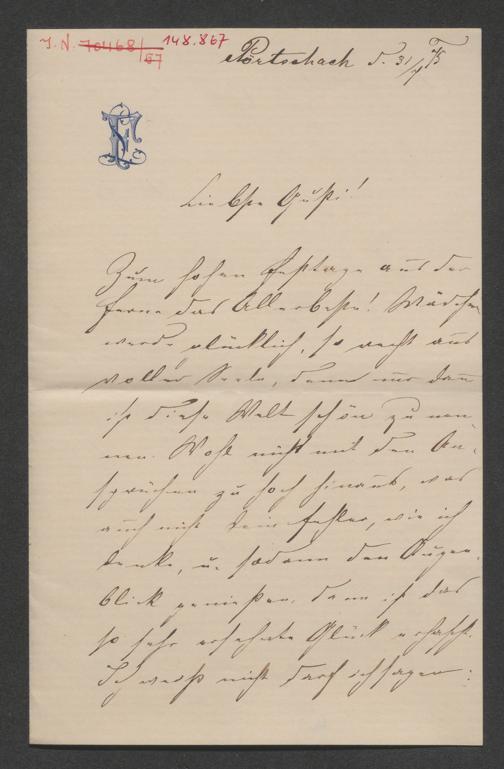 J. N. 70468/67 148.867
Pörtschach d. 31/7 75
Liebste Gusti!
Zum hohen Festtage aus der
Ferne das Allerbeste! Mädchen
werde glücklich, so recht aus
voller Seele, denn nur dann
ist diese Welt schön zu nen
nen. Wohl nicht mit den An-
sprüchen zu hoch hinaus, was
auch nicht dein Fehler, wie ich
denke, u. sodann den Augen
blick genießen, dann ist das
so sehr ersehnte Glück erhascht.
Ich weiß nicht darf ich sagen: